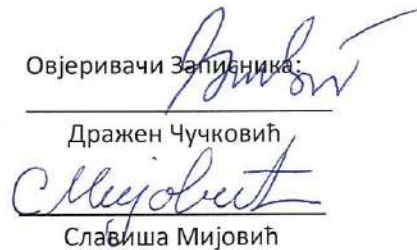 Овјеривачи Записника:
Дражен Чучковић
СМијовић
Славиша Мијовић